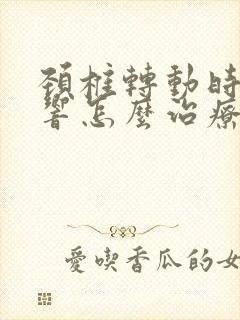 頸椎轉動時
響怎麼治療
愛喫香瓜的女